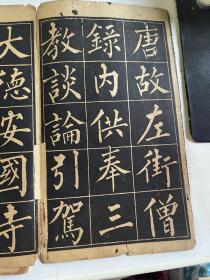 唐故左街僧
錄內供奉三
教談論引駕
大德安國寺